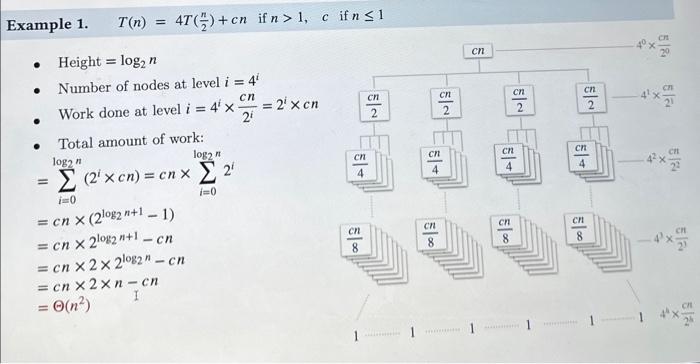 Example 1. T(n) = 4T(n/2) + cn if n > 1, c if n ≤ 1
• Height = log₂ n
• Number of nodes at level i = 4ⁱ
• Work done at level i = 4ⁱ × cn/2ⁱ = 2ⁱ × cn
• Total amount of work:
= ∑_{i=0}^{log₂ n} (2ⁱ × cn) = cn × ∑_{i=0}^{log₂ n} 2ⁱ
= cn × (2^{log₂ n+1} − 1)
= cn × 2^{log₂ n+1} − cn
= cn × 2 × 2^{log₂ n} − cn
= cn × 2 × n − cn
= Θ(n²)
cn 4⁰ × cn/2⁰
cn/2 cn/2 cn/2 cn/2 4¹ × cn/2¹
cn/4 cn/4 cn/4 cn/4 4² × cn/2²
cn/8 cn/8 cn/8 cn/8 4³ × cn/2³
1 1 1 1 1 1 4ʰ × cn/2ʰ